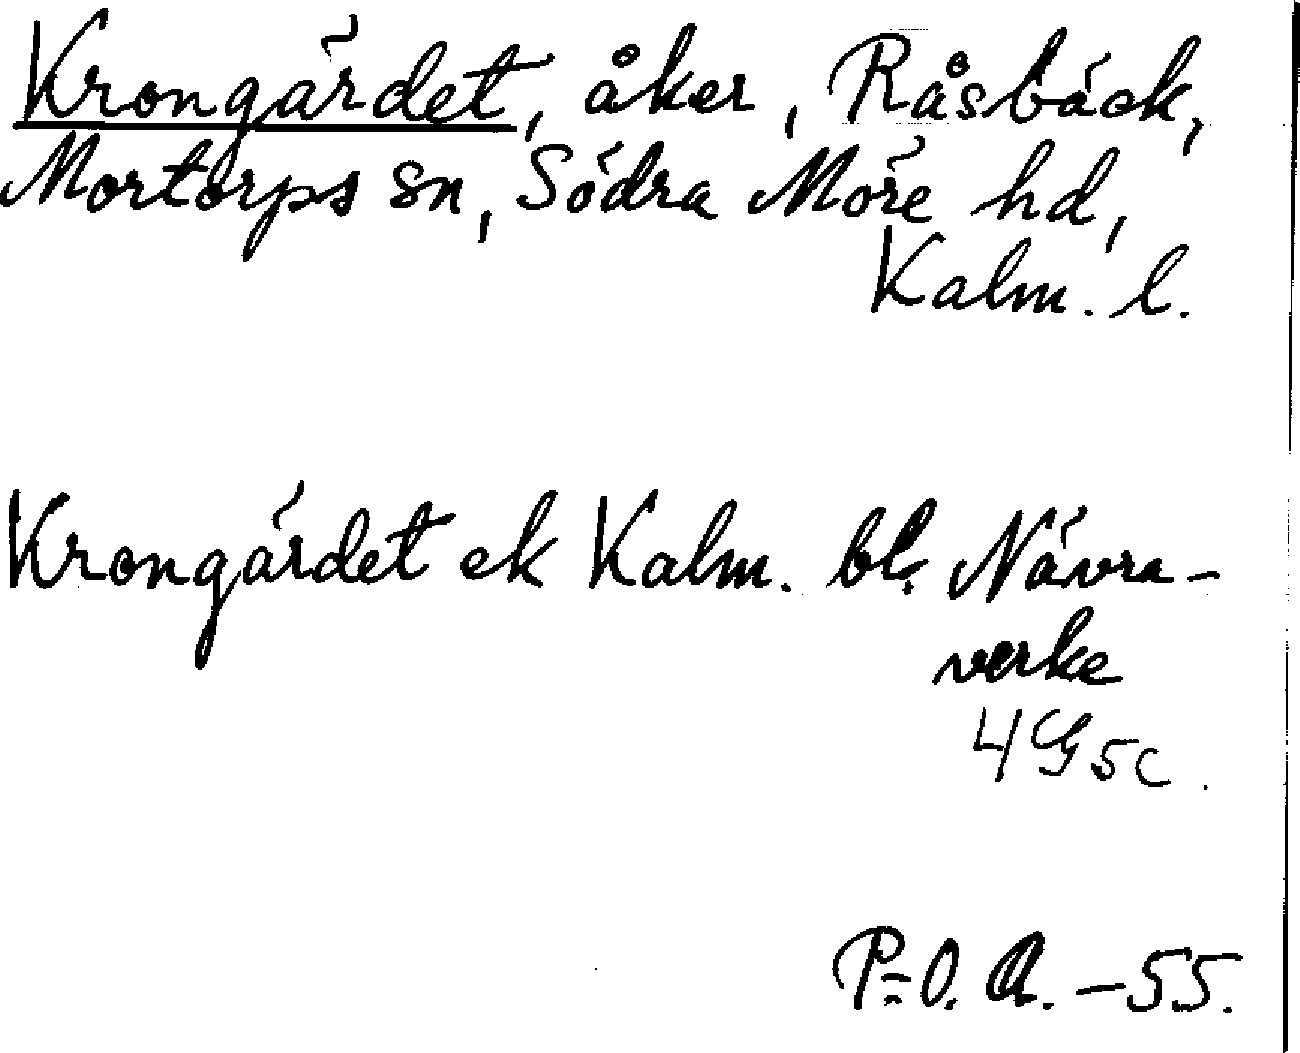 Krongärdet, åker, Råsbäck,
Mortorps sn, Södra Möre hd,
Kalm. l.
Krongärdet ek Kalm. bl. Nävra-
verke
4G5c.
P-O. A. - 55.